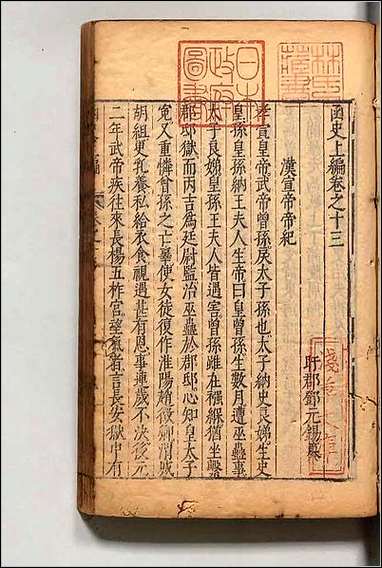 函史上編卷之十三
盱郡鄧元錫纂
漢宣帝帝紀
孝宣皇帝武帝曾孫戾太子孫也太子納史良娣生史
皇孫皇孫納王夫人生帝曰皇曾孫生數月遭巫蠱事
太子良娣皇孫王夫人皆遇害曾孫雖在襁褓猶坐繫
郡邸獄而丙吉為廷尉監治巫蠱於郡邸心知皇太子
冤又重憐曾孫之亡辜使女徒復作淮陽趙徵卿渭城
胡組更乳養私給衣食視遇甚有恩事連歲不決後元
二年武帝疾徃來長楊五柞宮望氣者言長安獄中有
日本
政府
圖書